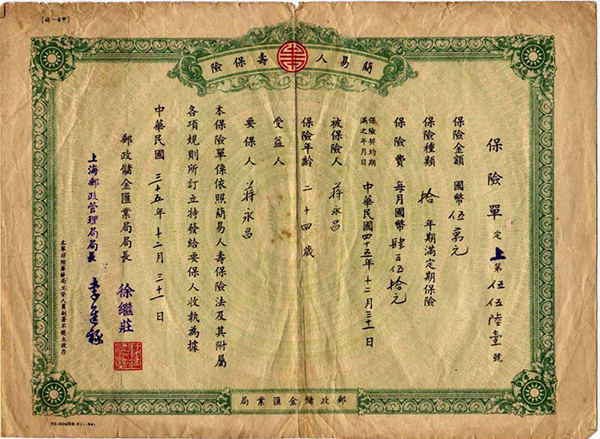 簡易人壽保險
保險單 定上第伍伍陸壹號
保險金額 國幣伍萬元
保險種類 拾年期滿定期保險
保險費 每月國幣肆百伍拾元
保險契約期滿之年月日 中華民國四十五年十二月三十一日
被保險人 蔣永昌
保險年齡 二十四歲
受益人
要保人 蔣永昌
本保險單係依照簡易人壽保險法及其附屬
各項規則所訂立特發給要保人收執為據
中華民國 三十五年十二月三十一日
郵政儲金匯業局局長 徐繼莊
上海郵政管理局局長
郵政儲金匯業局